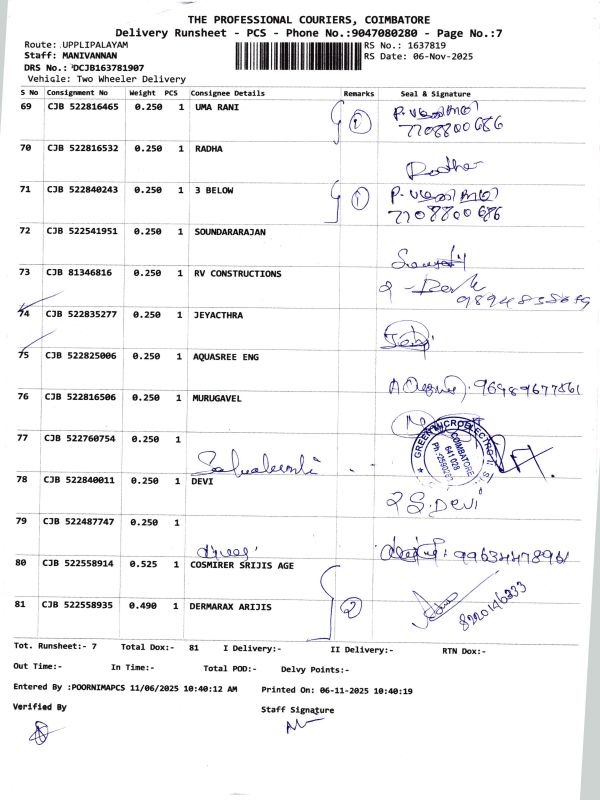 THE PROFESSIONAL COURIERS, COIMBATORE
Delivery Runsheet - PCS - Phone No.:9047080280 - Page No.:7
Route: UPPLIPALAYAM RS No.: 1637819
Staff: MANIVANNAN RS Date: 06-Nov-2025
DRS No.: DCJB163781907
Vehicle: Two Wheeler Delivery
S No Consignment No Weight PCS Consignee Details Remarks Seal & Signature
69 CJB 522816465 0.250 1 UMA RANI 1
7708800686
70 CJB 522816532 0.250 1 RADHA
Radha
71 CJB 522840243 0.250 1 3 BELOW 1
7708800686
72 CJB 522541951 0.250 1 SOUNDARARAJAN
73 CJB 81346816 0.250 1 RV CONSTRUCTIONS
74 CJB 522835277 0.250 1 JEYACTHRA
75 CJB 522825006 0.250 1 AQUASREE ENG
76 CJB 522816506 0.250 1 MURUGAVEL
77 CJB 522760754 0.250 1
COIMBATORE
641 028
78 CJB 522840011 0.250 1 DEVI
S. DEVI
79 CJB 522487747 0.250 1
80 CJB 522558914 0.525 1 COSMIRER SRIJIS AGE
81 CJB 522558935 0.490 1 DERMARAX ARIJIS 2
Tot. Runsheet:- 7 Total Dox:- 81 I Delivery:- II Delivery:- RTN Dox:-
Out Time:- In Time:- Total POD:- Delvy Points:-
Entered By :POORNIMAPCS 11/06/2025 10:40:12 AM Printed On: 06-11-2025 10:40:19
Verified By Staff Signature